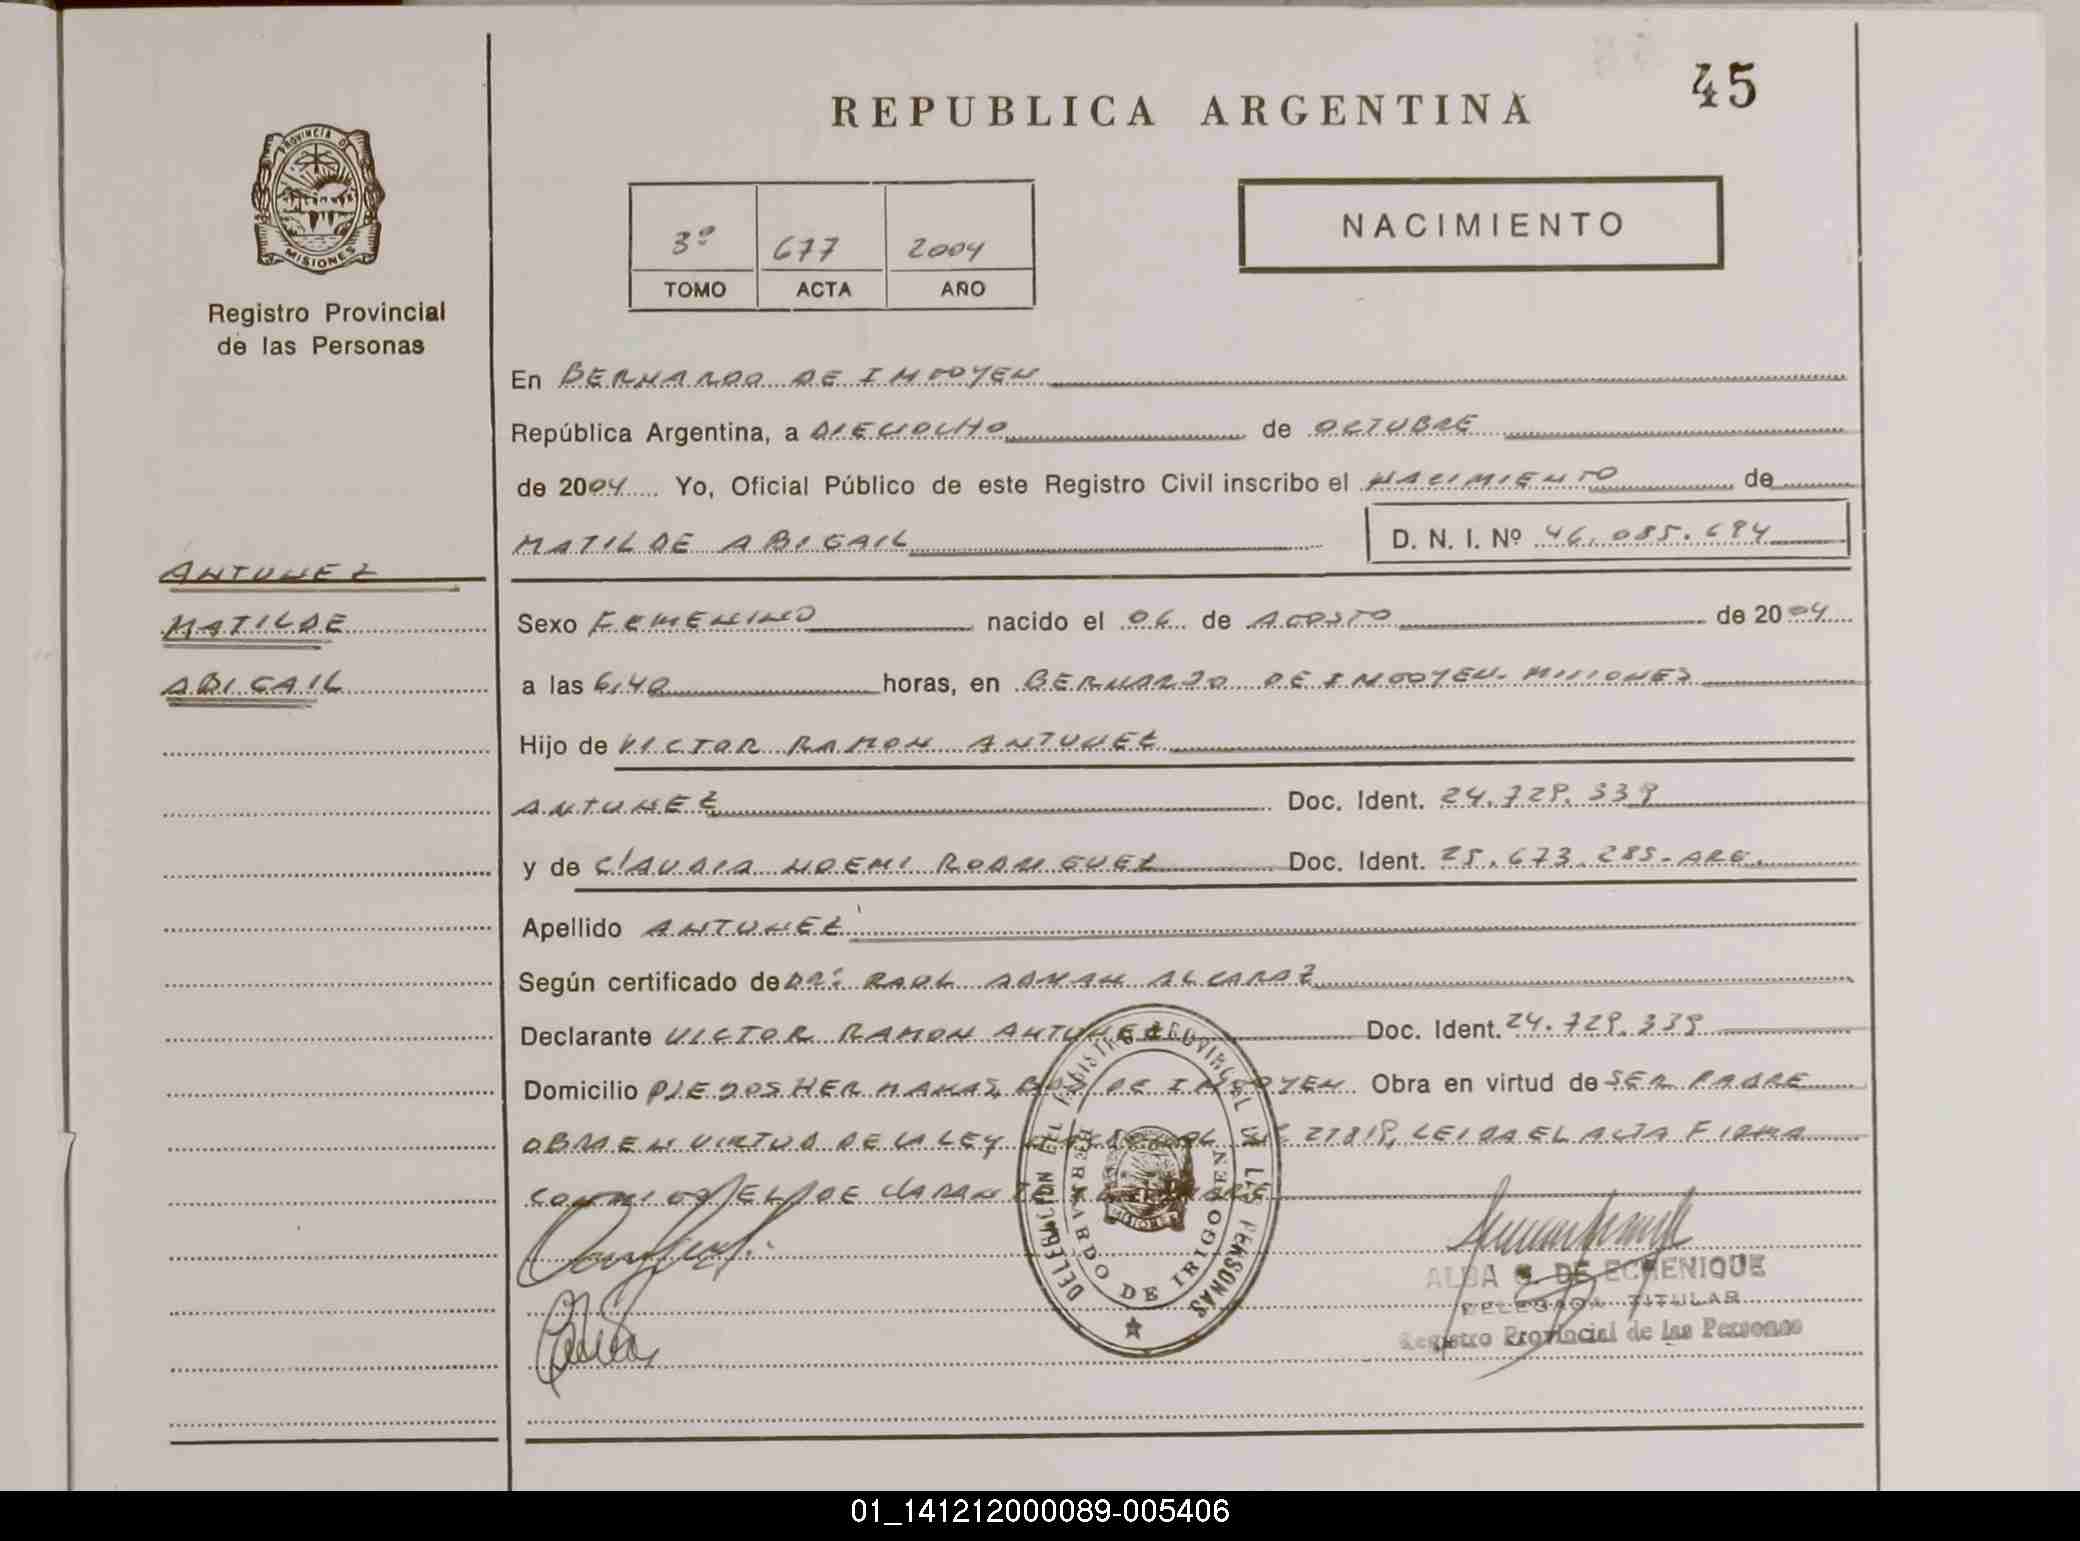 REPUBLICA ARGENTINA
45
PROVINCIA DE
MISIONES
Registro Provincial
de las Personas
3º 677 2004
TOMO ACTA AÑO
NACIMIENTO
En BERNARDO DE IRIGOYEN
República Argentina, a DIECIOCHO de OCTUBRE
de 2004 Yo, Oficial Público de este Registro Civil inscribo el NACIMIENTO de
MATILDE ABIGAIL D. N. I. Nº 46.085.694
ANTUNEZ
MATILDE
ABIGAIL
Sexo FEMENINO nacido el 06 de AGOSTO de 2004
a las 6,40 horas, en BERNARDO DE IRIGOYEN-MISIONES
Hijo de VICTOR RAMON ANTUNEZ
ANTUNEZ Doc. Ident. 24.729.339
y de CLAUDIA NOEMI RODRIGUEZ Doc. Ident. 25.673.285-ARG.
Apellido ANTUNEZ
Según certificado de DR: RAUL ADRIAN ALCARAZ
Declarante VICTOR RAMON ANTUNEZ Doc. Ident. 24.729.339
Domicilio HERMANAS, DE IRIGOYEN Obra en virtud de SER PADRE
OBRA EN VIRTUD DE LA LEY NACIONAL Nº LEIDA EL ACTA FIRMA
CONMIGO EL DECLARANTE
DELEGACION DEL REGISTRO PROVINCIAL DE LAS PERSONAS
BERNARDO DE IRIGOYEN
ALBA DE ECHENIQUE
DELEGADA TITULAR
Registro Provincial de las Personas
01_141212000089-005406